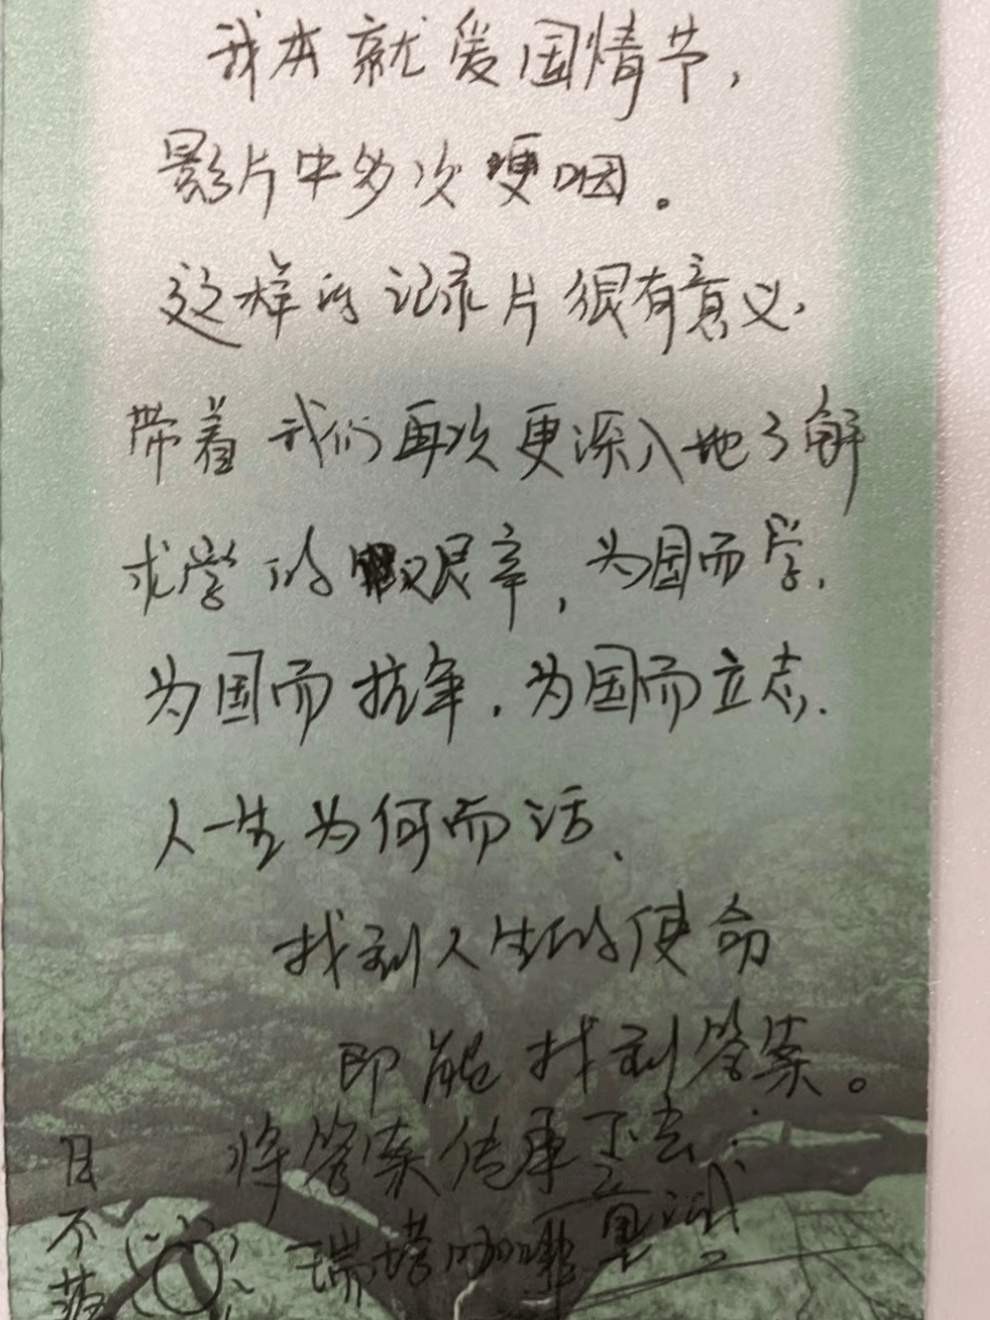 我本就爱国情节，
影片中多次哽咽。
这样的记录片很有意义，
带着我们再次更深入地了解
求学的艰辛，为国而学，
为国而抗争，为国而立志，
人一生为何而活、
找到人生的使命
即能找到答案。
将答案传承下去
瑞塔咖啡
且不落